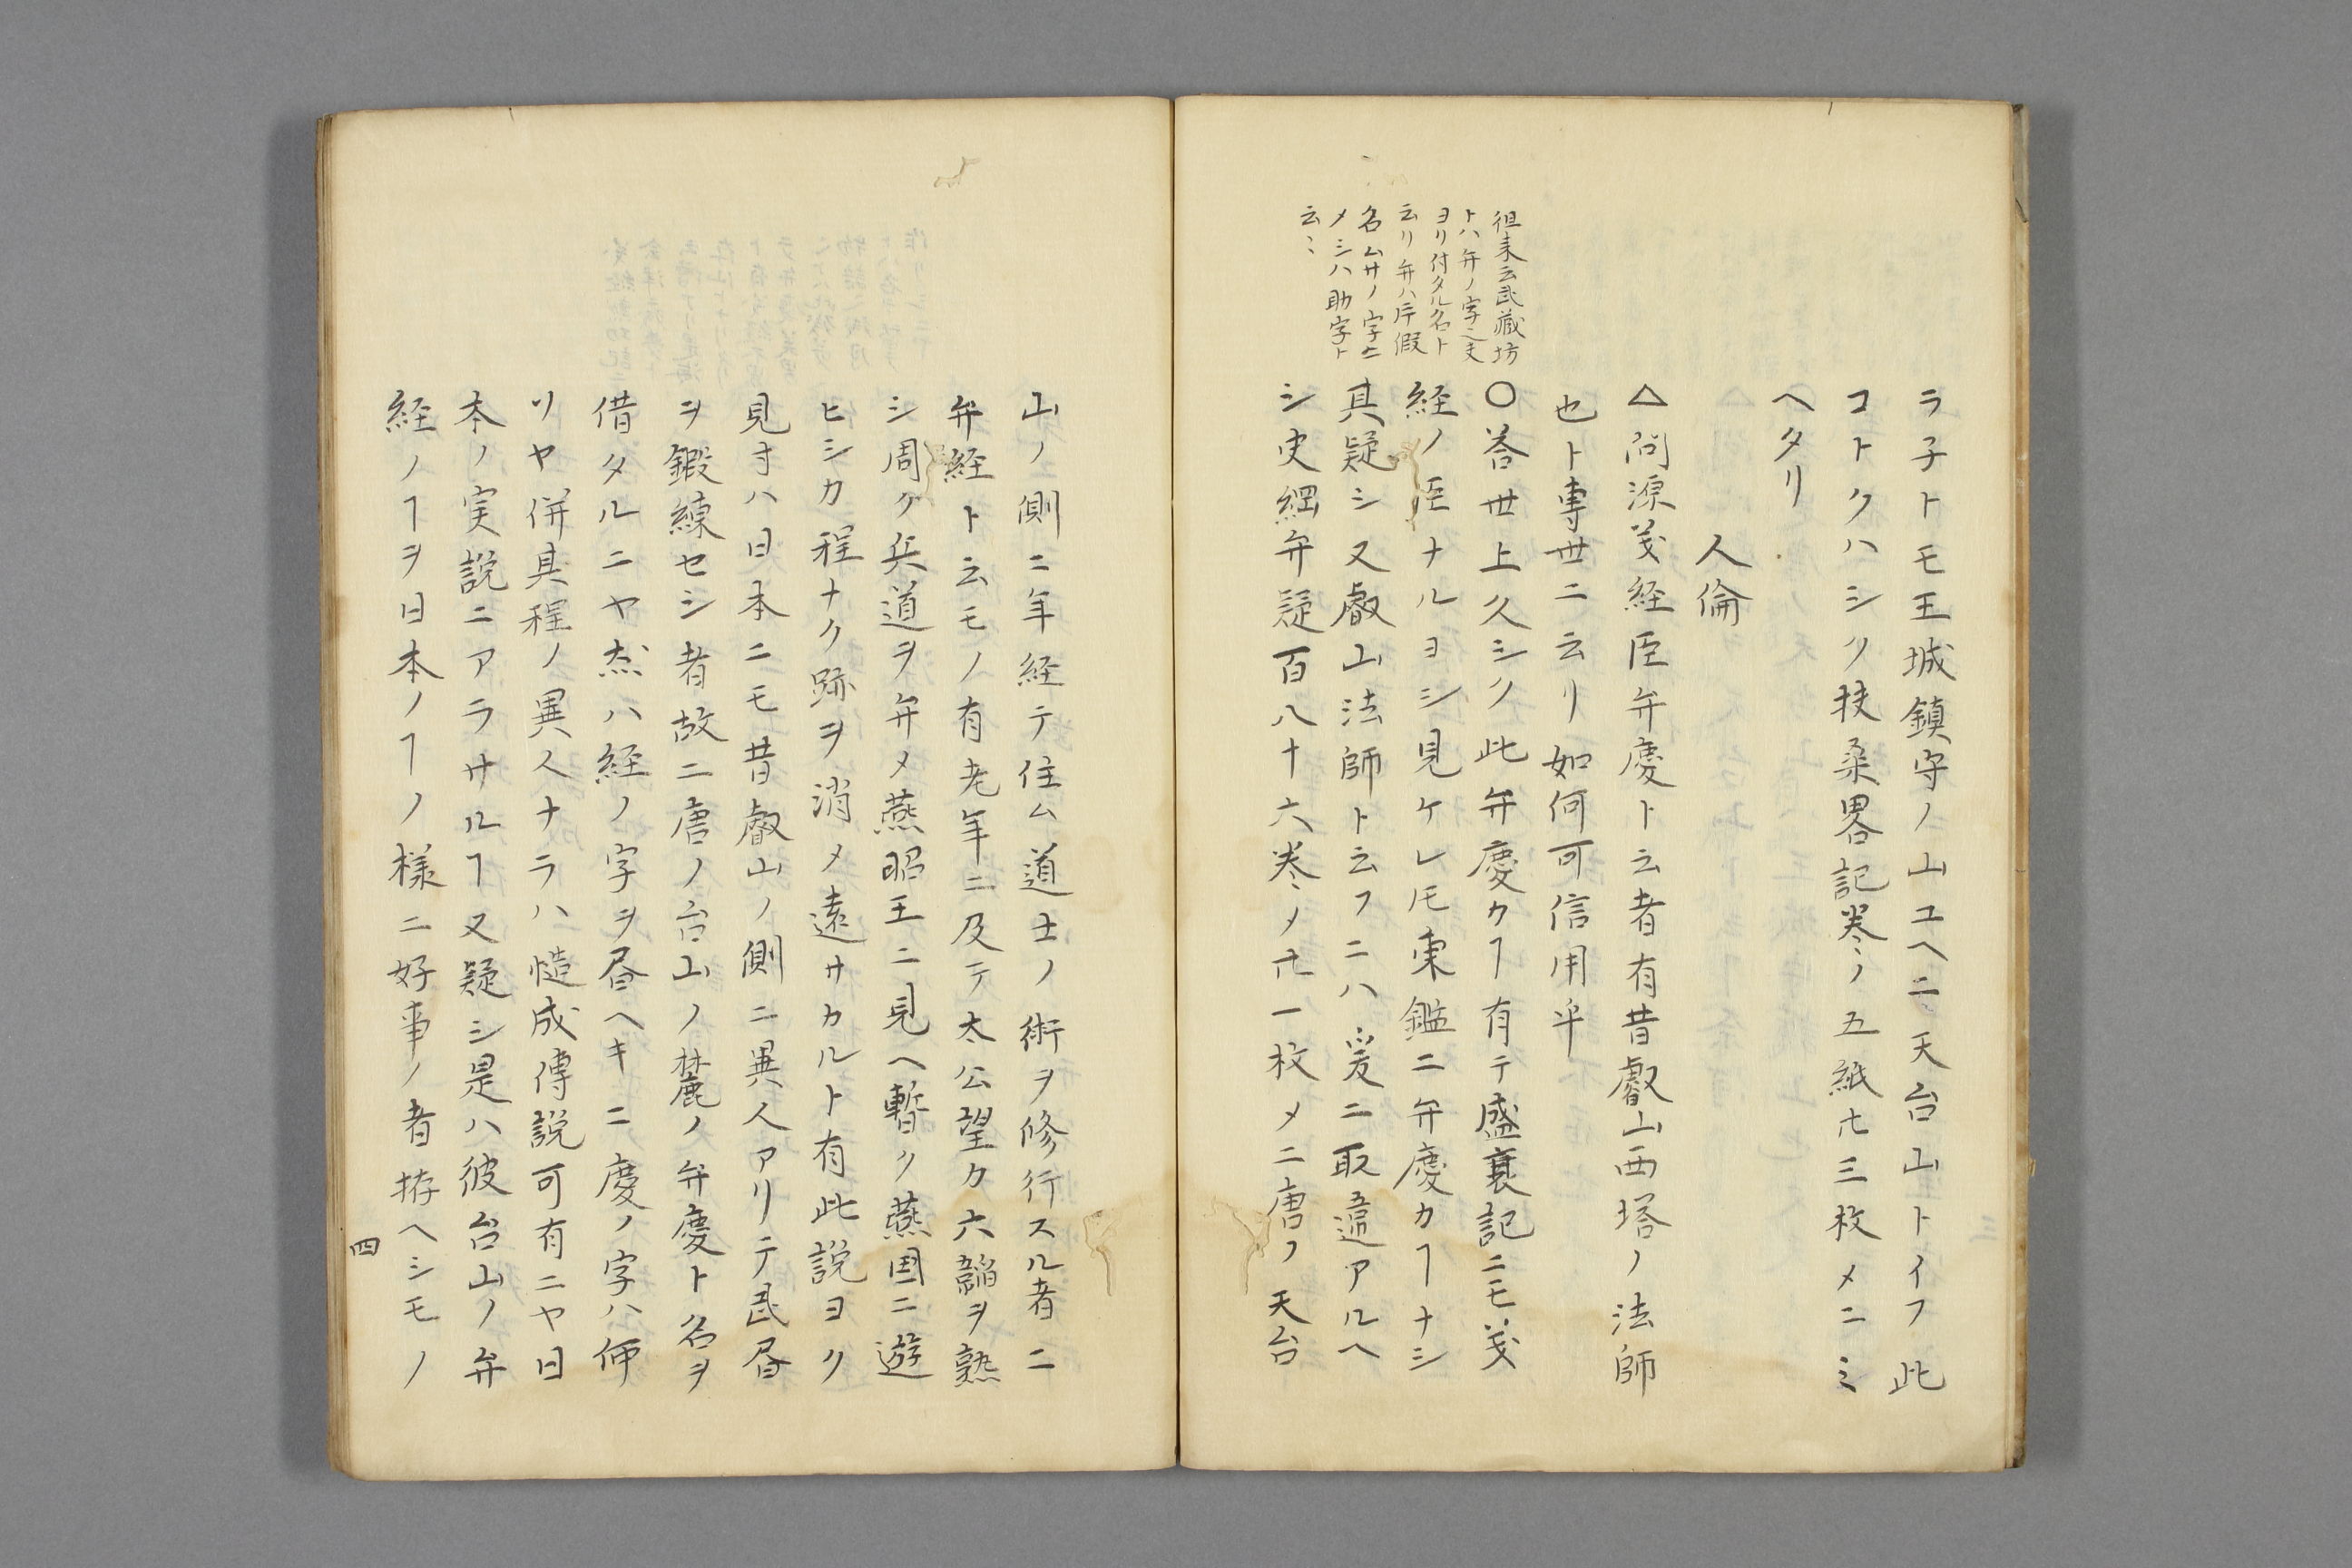 ラ子トモ王城鎮守ノ山ユヘニ天台山トイフ此
コトクハシリ扶桑畧記巻ノ五紙卅三枚メニミ
ヘタリ
人倫
△問源義経臣弁慶ト云者有昔叡山西塔ノ法師
也ト専世ニ云リ如何可信用乎
徂来云武藏坊
トハ弁ノ字之丈
ヨリ付タル名ト
云リ弁ハ片假
名ムサノ字ニ
メシハ助字ト
云〻
〇答世上久シク此弁慶カヿ有テ盛衰記ニモ義
経ノ臣ナルヨシ見ケレ𪜈東鑑ニ弁慶カヿナシ
其疑シ又叡山法師ト云フニハ爰ニ取違アルヘ
シ史綱弁疑百八十六巻メ卅一枚メニ唐ノ天台
山ノ側ニ年経テ住ム道士ノ術ヲ修行スル者ニ
弁経ト云モノ有老年ニ及テ太公望カ六韜ヲ熟
シ周ク兵道ヲ弁メ燕昭王ニ見ヘ暫ク燕国ニ遊
ヒシカ程ナク跡ヲ消メ遠サカルト有此説ヨク
見寸ハ日本ニモ昔叡山ノ側ニ異人アリテ武昏
ヲ鍛練セシ者故ニ唐ノ台山ノ麓ノ弁慶ト名ヲ
借タルニヤ然ハ経ノ字ヲ昏ヘキニ慶ノ字ハ俥
リヤ併其程ノ異人ナラハ慥成傳説可有ニヤ日
本ノ実説ニアラサルヿ又疑シ是ハ彼台山ノ弁
経ノヿヲ日本ノヿノ様ニ好事ノ者拵ヘシモノ
四